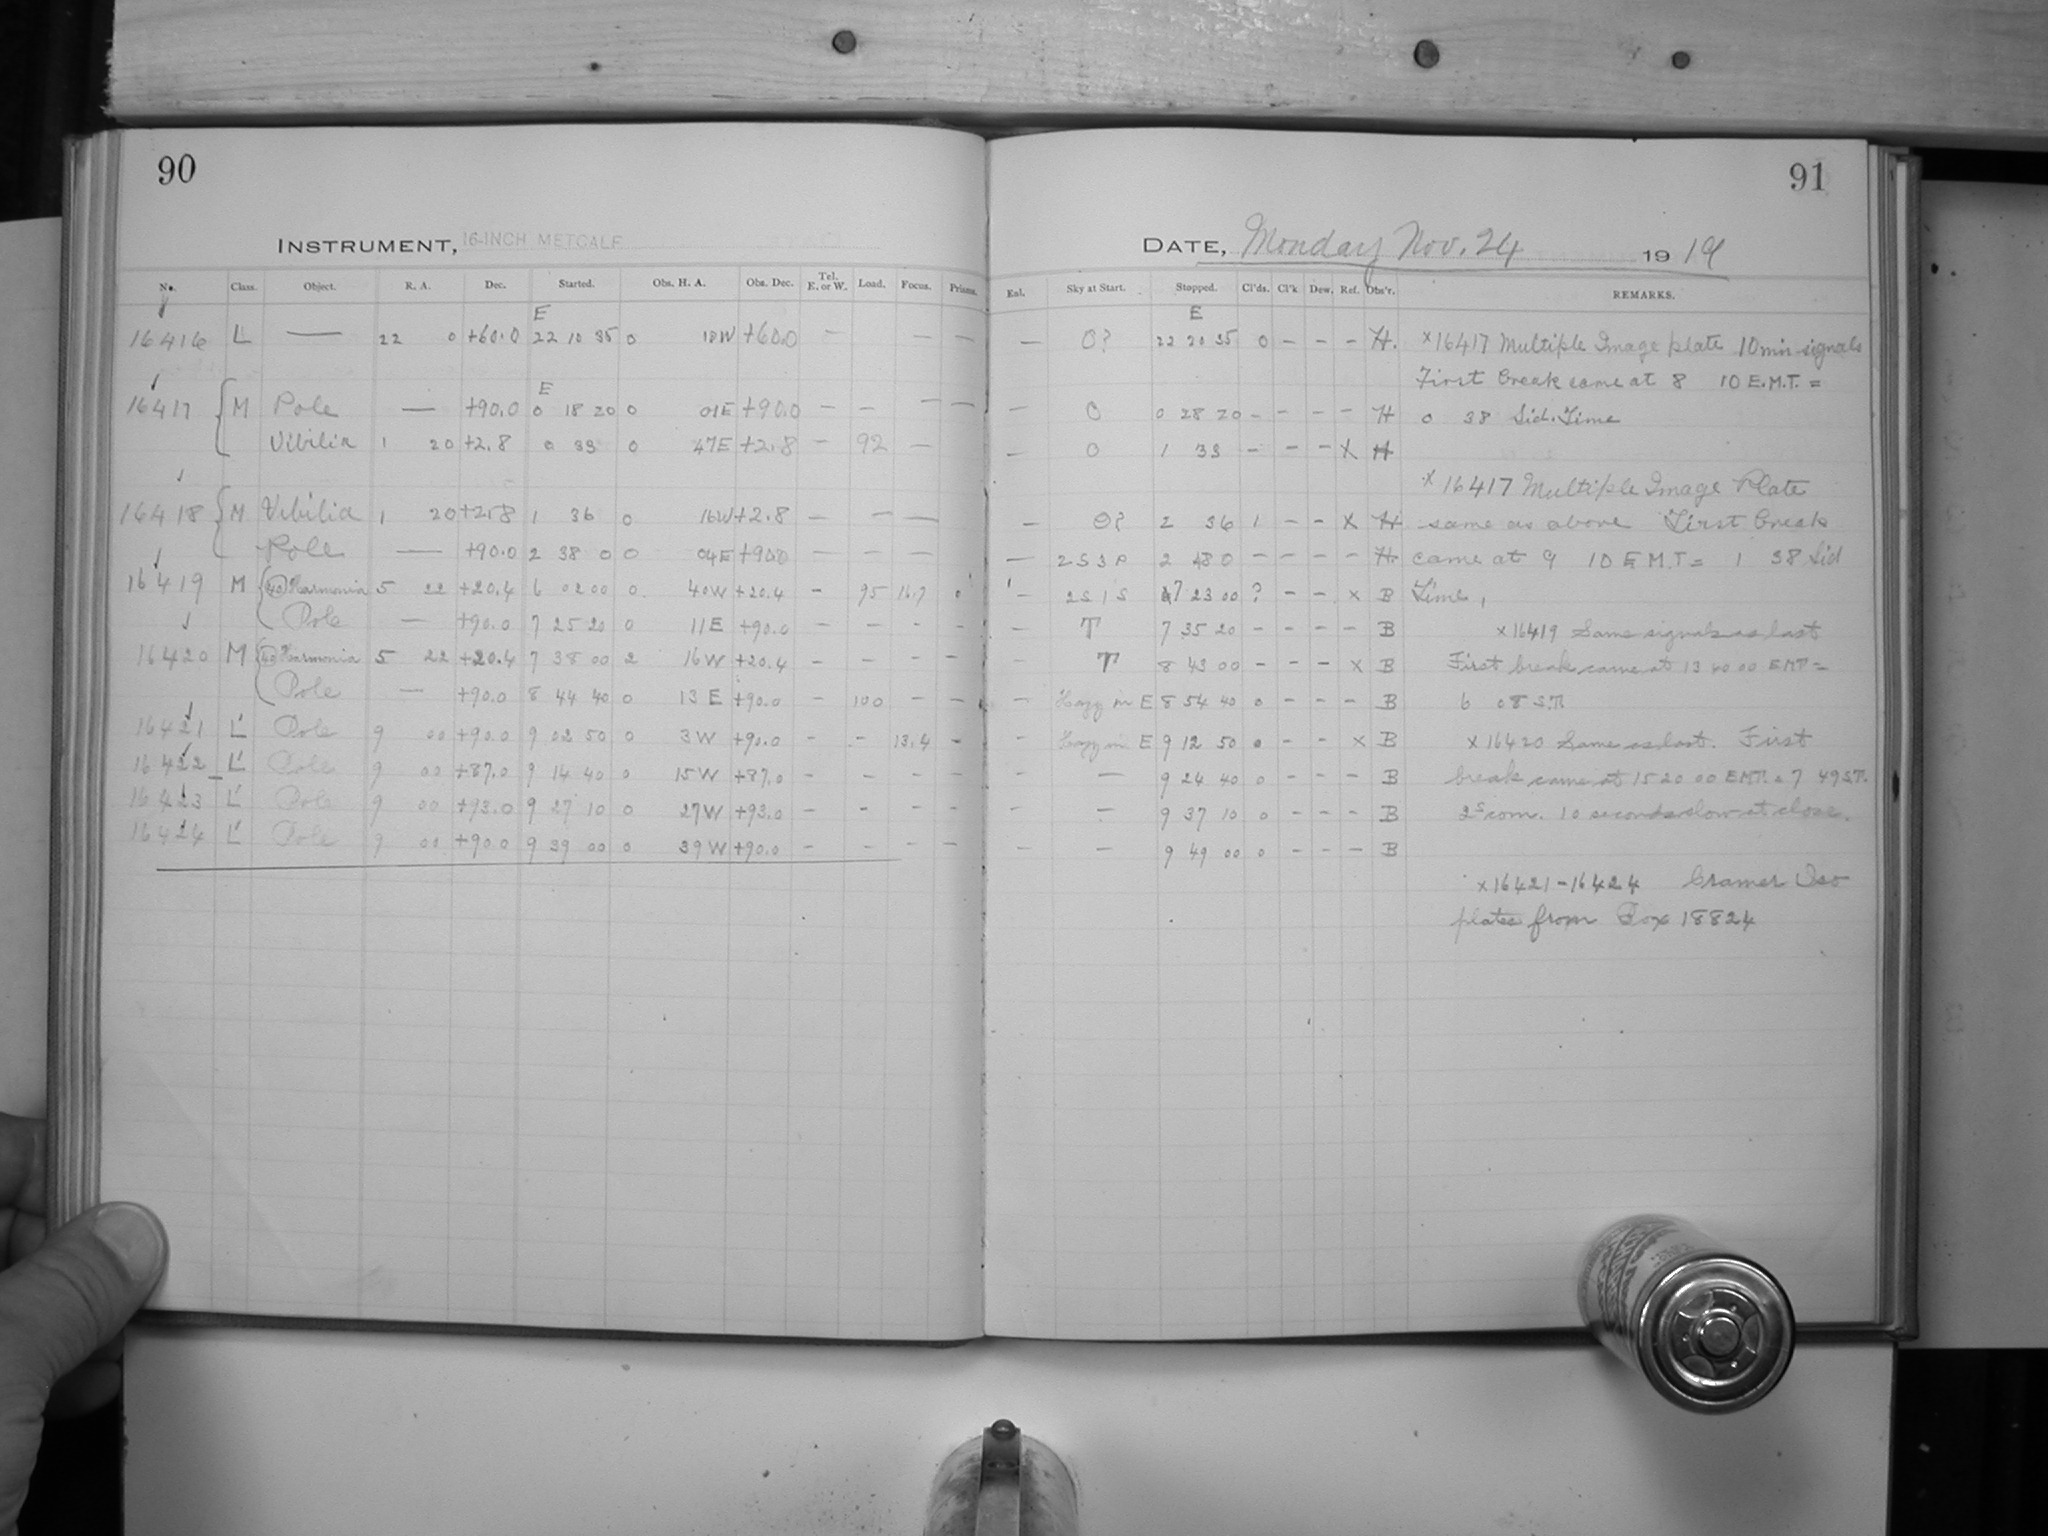 90
INSTRUMENT, 16-INCH METCALF
No. Class. Object. R. A. Dec. Started. Obs. H. A. Obs. Dec. Tel. E. or W. Load. Focus. Prisms.
E
16416 L — 22 0 +60.0 22 10 35 0 10W +60.0 — — —
E
16417 M Pole — +90.0 0 18 20 0 01E +90.0 — — — —
Vibilia 1 20 +2.8 0 33 0 47E +2.8 — 92 —
16418 M Vibilia 1 20 +2.8 1 36 0 16W +2.8 — — —
Pole — +90.0 2 38 0 0 04E +90.0 — — —
16419 M (40) Harmonia 5 22 +20.4 6 02 00 0 40W +20.4 - 95 16.7
Pole — +90.0 7 25 20 0 11E +90.0 - - - -
16420 M (40) Harmonia 5 22 +20.4 7 38 00 2 16W +20.4 - - - -
Pole — +90.0 8 44 40 0 13E +90.0 - 100 - -
16421 L' Pole 9 00 +90.0 9 02 50 0 3W +90.0 - - 13.4 -
16422 L' Pole 9 00 +87.0 9 14 40 0 15W +87.0 - - - -
16423 L' Pole 9 00 +93.0 9 27 10 0 27W +93.0 - - - -
16424 L' Pole 9 00 +90.0 9 39 00 0 39W +90.0 - - - -
91
DATE, Monday Nov. 24 1919
Enl. Sky at Start. Stopped. Cl'ds. Cl'k Dew. Ref. Obs'r. REMARKS.
E
— 0? 22 20 35 0 - - - H. x16417 Multiple Image plate 10 min signals
First break came at 8 10 E.M.T. =
— 0 0 28 20 - - - - H 0 38 Sid. Time
— 0 1 33 - - - X H
x16417 Multiple Image Plate
— 0? 2 36 1 - - X H same as above First break
— 2S3P 2 48 0 - - - - H came at 9 10 E.M.T. = 1 38 Sid
- 2S1S 7 23 00 ? - - x B Time.
- T 7 35 20 - - - - B x16419 Same signals as last
- T 8 43 00 - - - x B First break came at 13 40 00 EMT =
- Hazy in E 8 54 40 0 - - - B 6 08 S.T.
- Hazy in E 9 12 50 0 - - x B x16420 Same as last. First
- — 9 24 40 0 - - - B break came at 15 20 00 EMT. = 7 49 S.T.
- - 9 37 10 0 - - - B com. 10 seconds slow at close.
- - 9 49 00 0 - - - B
x16421-16424 Cramer Iso
plates from Box 18824